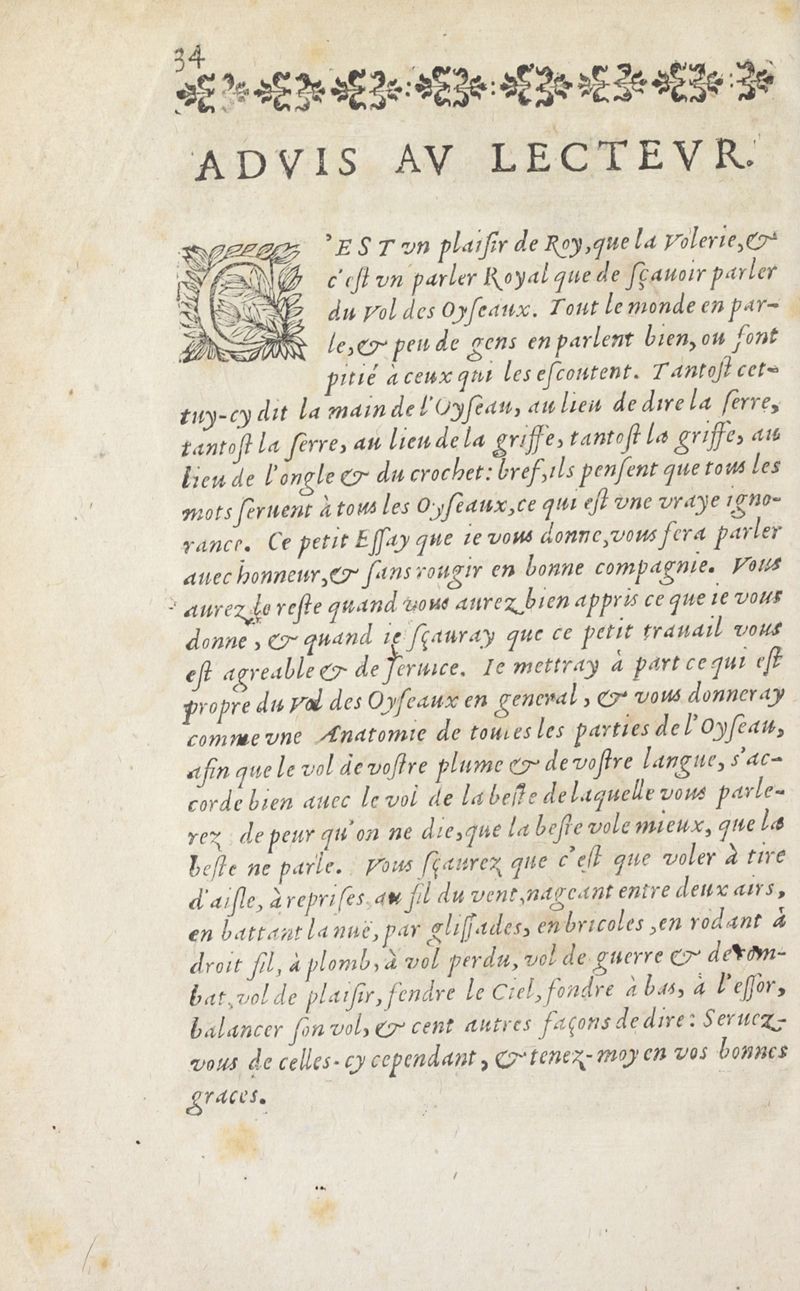 34
ADVIS AV LECTEVR.
C'EST vn plaiſir de Roy, que la Volerie, &
c'eſt vn parler Royal que de ſçauoir parler
du Vol des Oyſeaux. Tout le monde en par-
le, & peu de gens en parlent bien, ou font
pitié à ceux qui les eſcoutent. Tantoſt cet-
tuy-cy dit la main de l'Oyſeau, au lieu de dire la ſerre,
tantoſt la ſerre, au lieu de la griffe, tantoſt la griffe, au
lieu de l'ongle & du crochet: bref, ils penſent que tous les
mots ſeruent à tous les Oyſeaux, ce qui eſt vne vraye igno-
rance. Ce petit Eſſay que ie vous donne, vous fera parler
auec honneur, & ſans rougir en bonne compagnie. Vous
aurez le reſte quand vous aurez bien appris ce que ie vous
donne, & quand ie ſçauray que ce petit trauail vous
eſt agreable & de ſeruice. Ie mettray à part ce qui eſt
propre du Vol des Oyſeaux en general, & vous donneray
comme vne Anatomie de toutes les parties de l'Oyſeau,
afin que le vol de voſtre plume & de voſtre langue, s'ac-
corde bien auec le vol de la beſte de laquelle vous parle-
rez de peur qu'on ne die, que la beſte vole mieux, que la
beſte ne parle. Vous ſçaurez que c'eſt que voler à tire
d'aiſle, à repriſes, au fil du vent, nageant entre deux airs,
en battant la nuë, par gliſſades, en bricoles, en rodant à
droit fil, à plomb, à vol perdu, vol de guerre & de com-
bat, vol de plaiſir, fendre le Ciel, fondre à bas, à l'eſſor,
balancer ſon vol, & cent autres façons de dire: Seruez-
vous de celles-cy cependant, & tenez-moy en vos bonnes
graces.